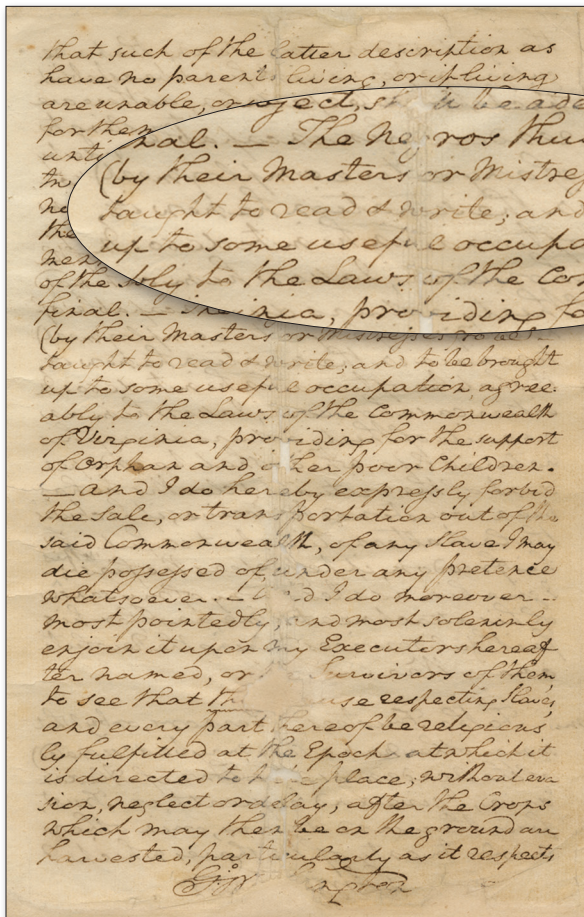 that such of the latter description as
have no parents living, or if living
are unable, or
for them
nal. — The Negros thu
(by their Masters or Mistre
taught to read & write; and
up to some useful occupa
bly to the Laws of the Co
nia, providing fo
of the
final. — The
(by their Masters or Mistresses)
taught to read & write; and to be brought
up to some useful occupation, agree-
ably to the Laws of the Commonwealth
of Virginia, providing for the support
of Orphan and other poor Children.
— and I do hereby expressly forbid
the sale, or transportation out of the
said Commonwealth, of any Slave I may
die possessed of, under any pretence
whatsoever. — And I do moreover —
most pointedly, and most solemnly
enjoin it upon my Executors hereaf
ter named, or Survivors of them
to see that th use respecting Slaves,
and every part thereof be religious,
ly fulfilled at the Epoch at which it
is directed to place; without eva
sion, neglect or delay, after the Crops
which may then be on the ground are
harvested, particularly as it respects
G: W ington